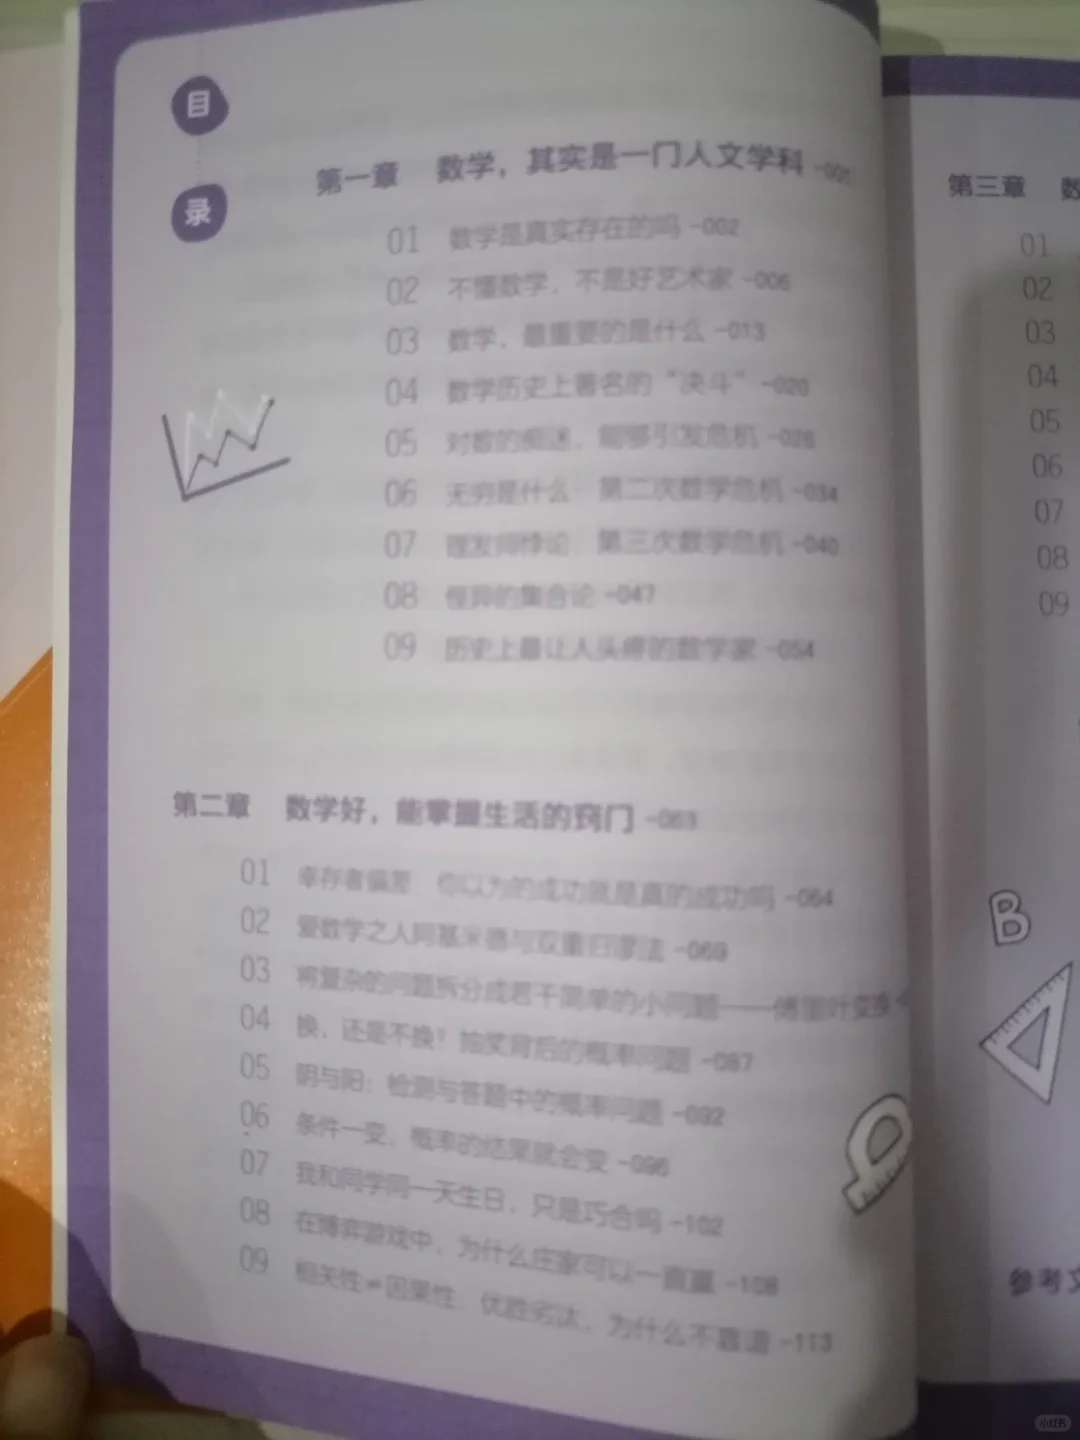 目
录
第一章 数学，其实是一门人文学科 -001
01 数学是真实存在的吗 -002
02 不懂数学，不是好艺术家 -006
03 数学，最重要的是什么 -013
04 数学历史上著名的“决斗” -020
05 对数的痴迷，能够引发危机 -028
06 无穷是什么 第二次数学危机 -034
07 理发师悖论 第三次数学危机 -040
08 怪异的集合论 -047
09 历史上最让人头疼的数学家 -054
第二章 数学好，能掌握生活的窍门 -063
01 幸存者偏差 你以为的成功就是真的成功吗 -064
02 爱数学之人阿基米德与双重归谬法 -069
03 将复杂的问题拆分成若干简单的小问题——傅里叶变换
04 换，还是不换？抽奖背后的概率问题 -087
05 阴与阳：检测与答题中的概率问题 -092
06 条件一变，概率的结果就会变 -096
07 我和同学同一天生日，只是巧合吗 -102
08 在博弈游戏中，为什么庄家可以一直赢 -108
09 相关性≠因果性，优胜劣汰，为什么不靠谱 -113
第三章 数
01
02
03
04
05
06
07
08
09
B
参考文
小红书